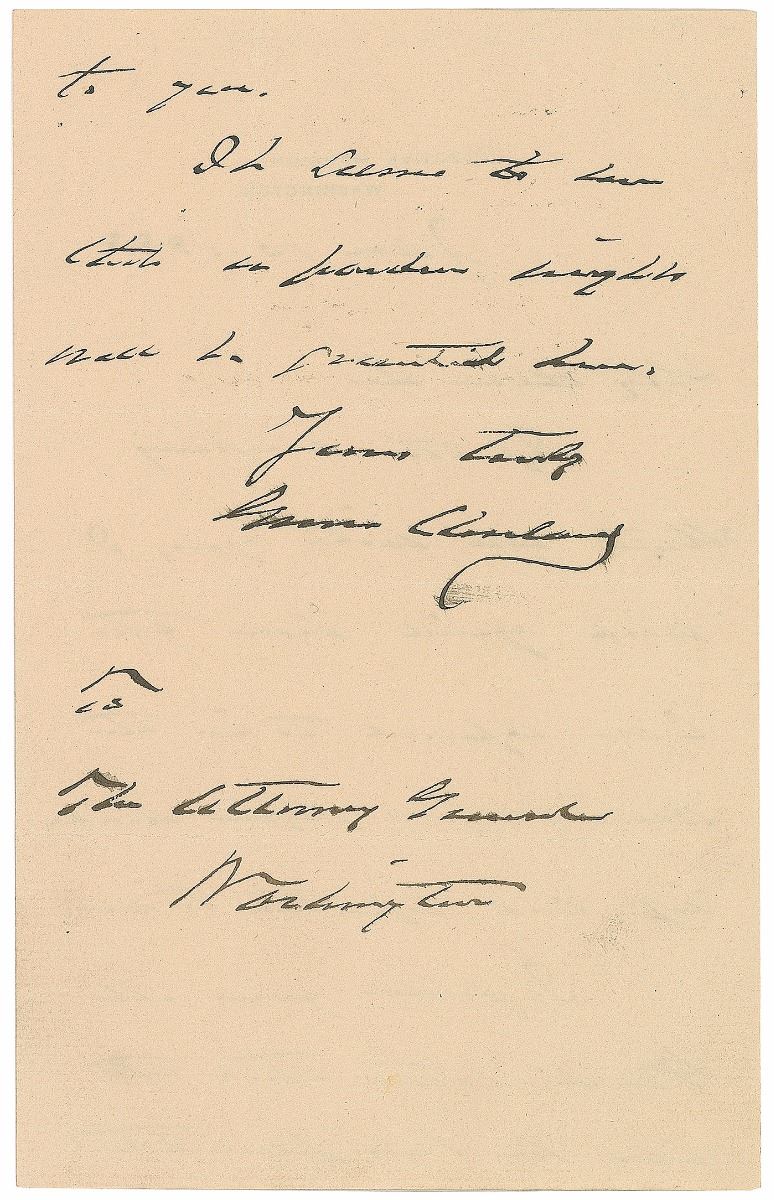 to you.
It seems to me
that a pardon might
well be granted here.
Yours truly
Grover Cleveland
To
The Attorney General
Washington